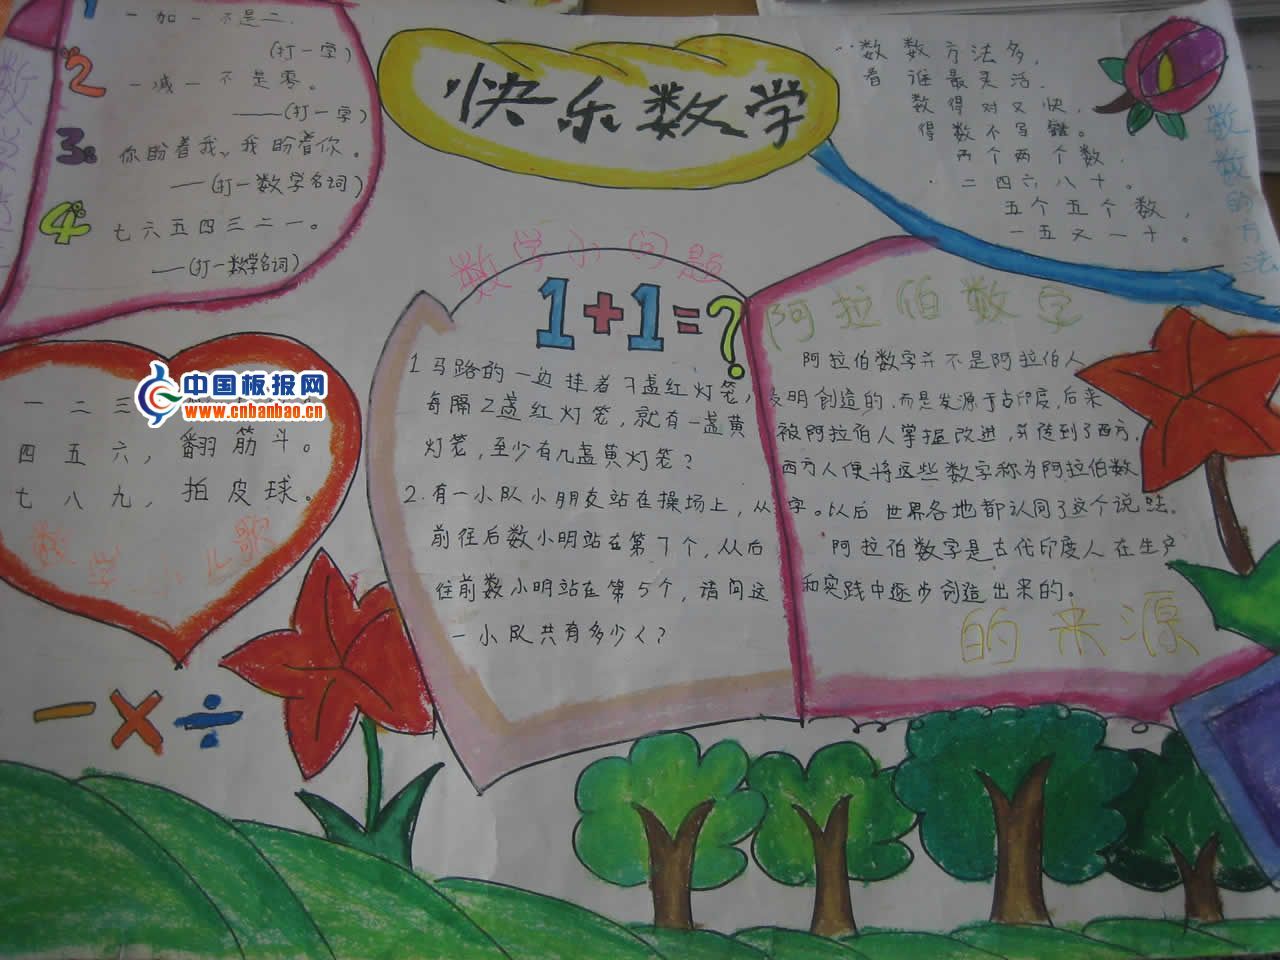 快乐数学
1
一加一不是二.
(打一字)
2
一减一不是零。
——(打一字)
3
你盼着我,我盼着你。
——(打一数学名词)
4
七六五四三二一。
——(打一数学名词)
数数方法多,
看谁最灵活,
数得对又快,
得数不写错。
两个两个数,
二四六八十。
五个五个数,
一五又一十。
数数的方法
数学小问题
1+1=?
1 马路的一边挂着7盏红灯笼,
每隔2盏红灯笼,就有一盏黄
灯笼,至少有几盏黄灯笼?
2.有一小队小朋友站在操场上,从
前往后数小明站在第7个,从后
往前数小明站在第5个,请问这
一小队共有多少人?
阿拉伯数字
阿拉伯数字并不是阿拉伯人
发明创造的,而是发源于古印度,后来
被阿拉伯人掌握改进,并传到了西方,
西方人便将这些数字称为阿拉伯数
字。以后世界各地都认同了这个说法。
阿拉伯数字是古代印度人在生产
和实践中逐步创造出来的。
的来源
中国板报网
www.cnbanbao.cn
一二三
四五六,翻筋斗。
七八九,拍皮球。
数学小儿歌
-×÷